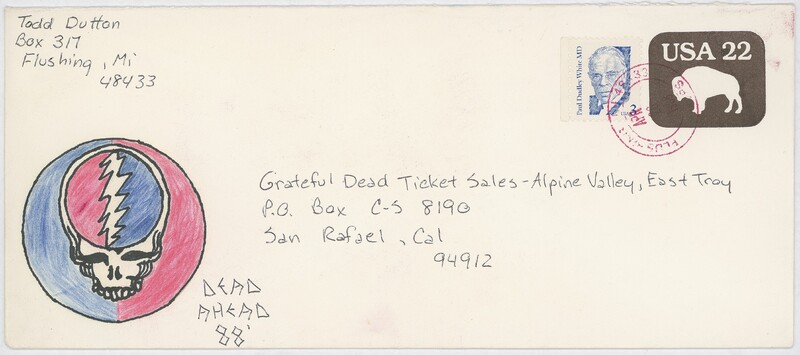 Todd Dutton
Box 317
Flushing, Mi
48433
Paul Dudley White MD
USA 22
48433
APR
Grateful Dead Ticket Sales-Alpine Valley, East Troy
P.O. Box C-S 8190
San Rafael, Cal
94912
DEAD
AHEAD
88'